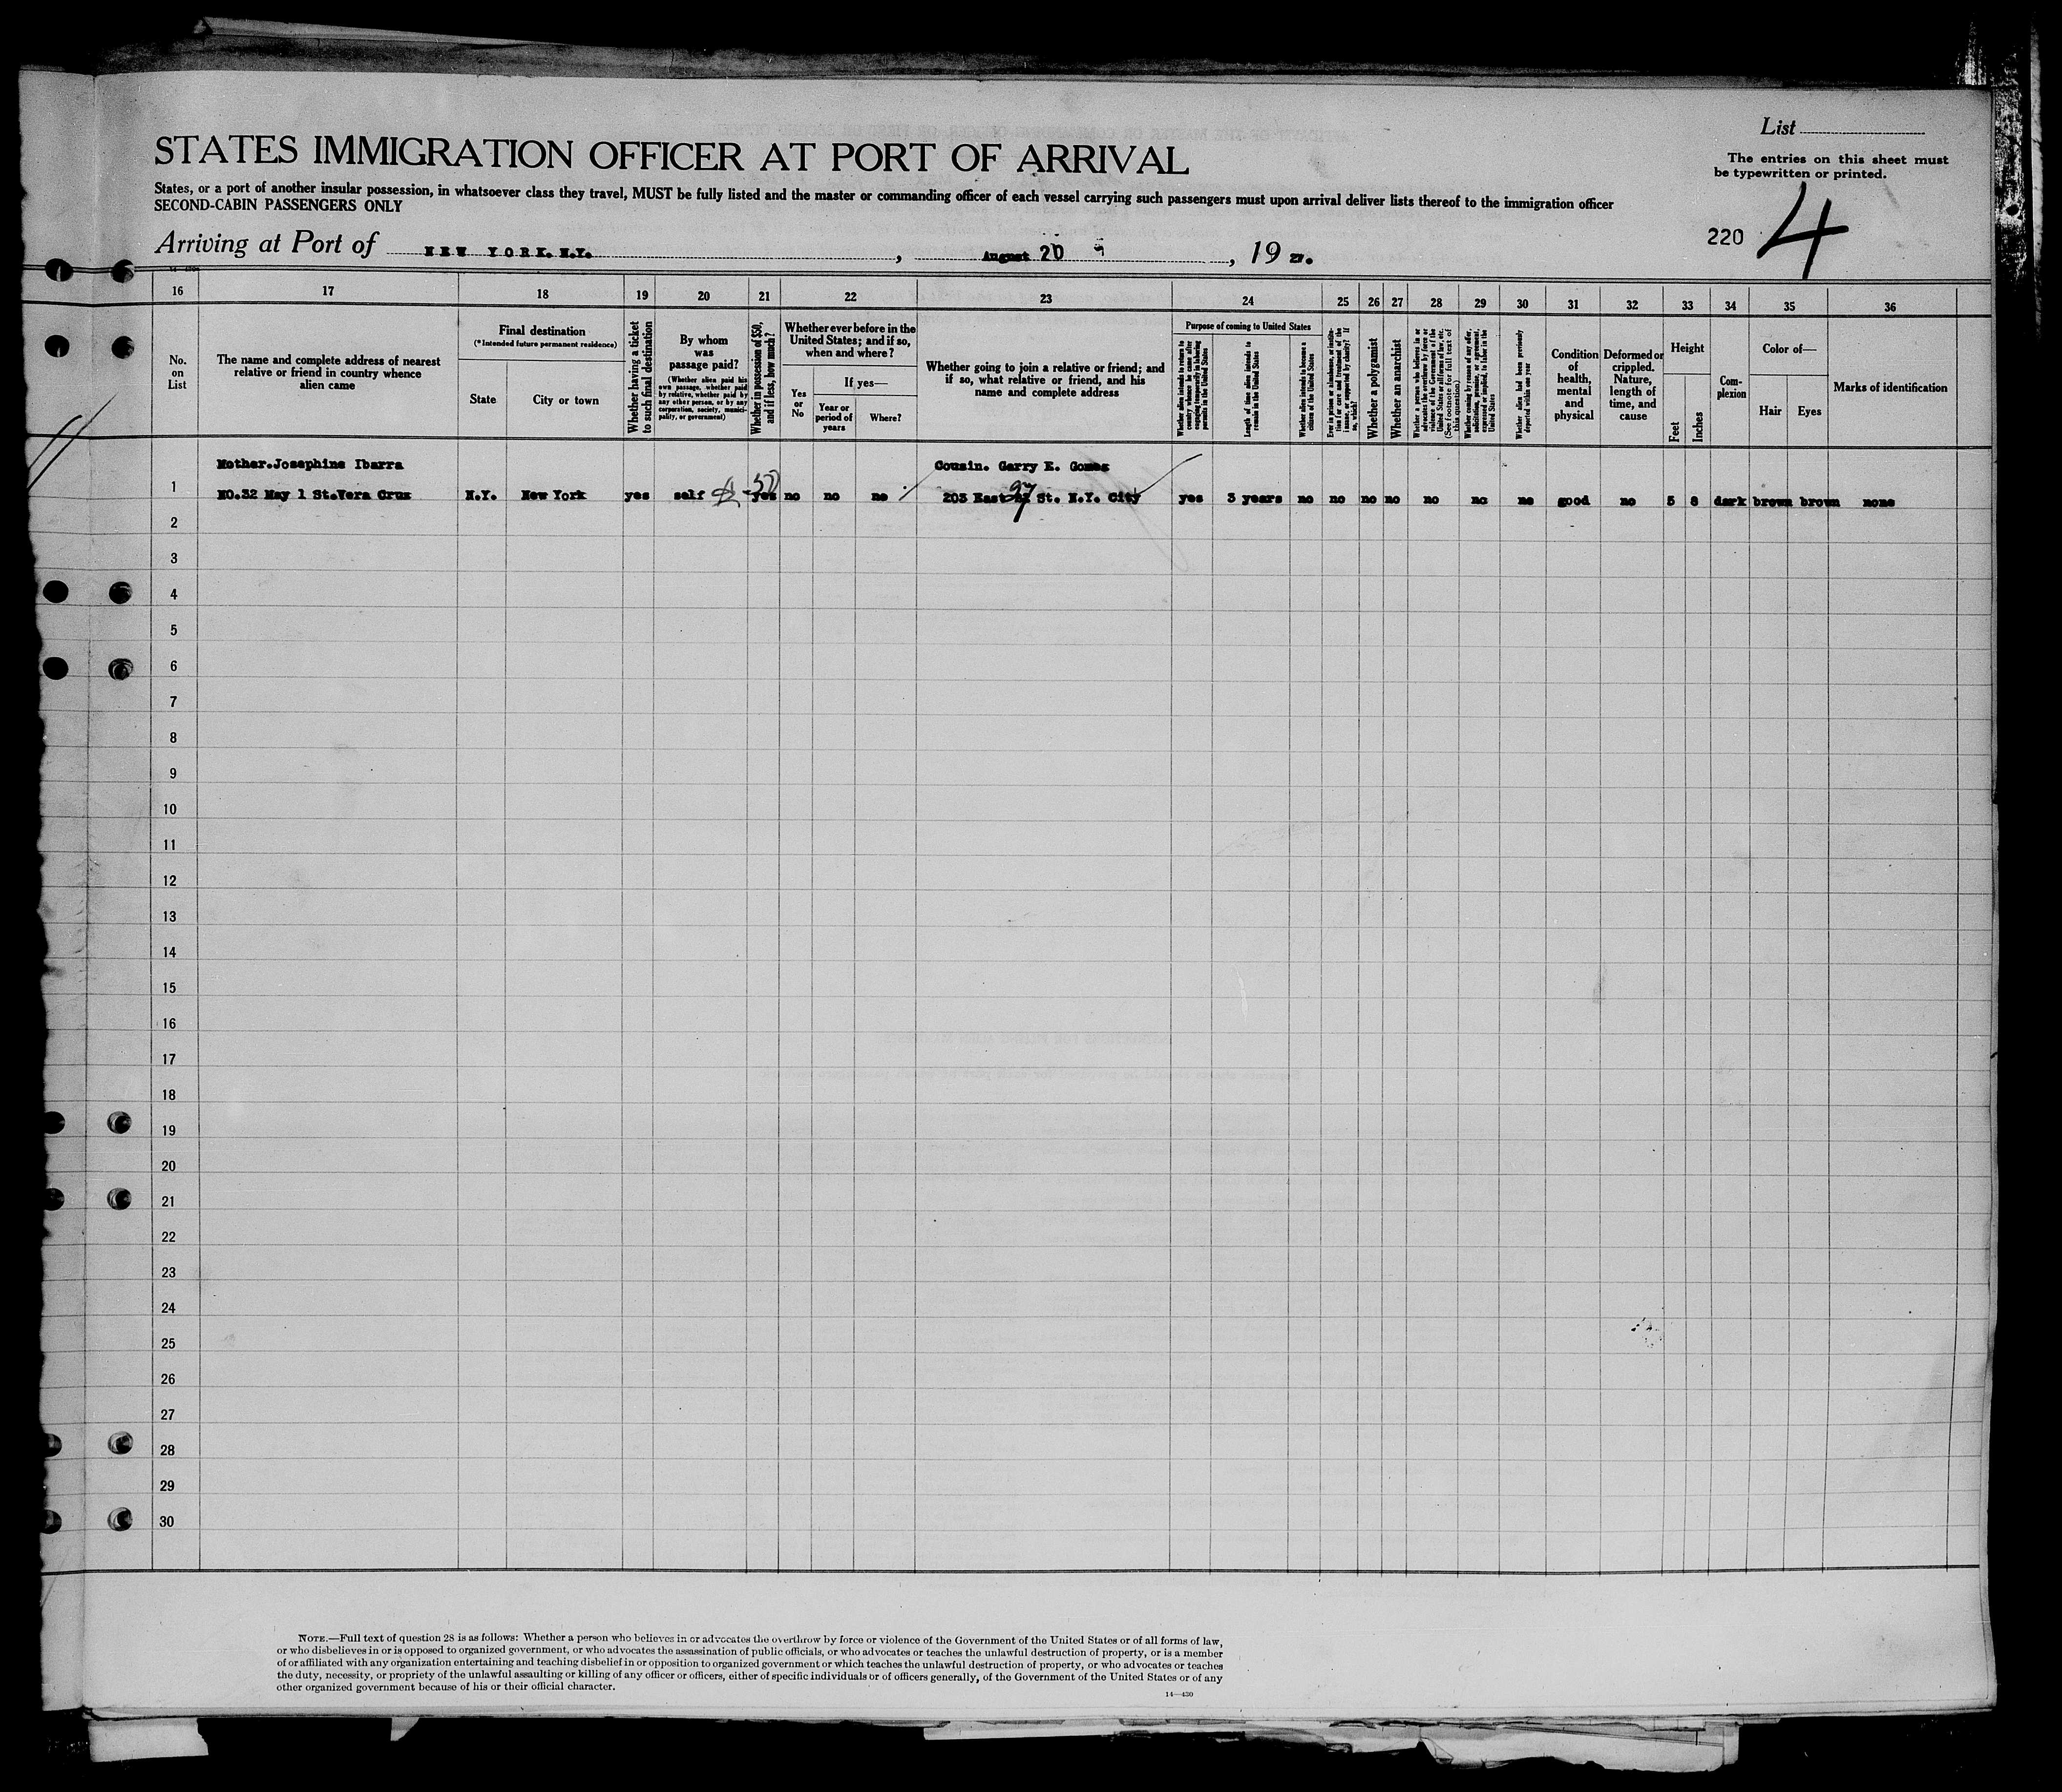 List
STATES IMMIGRATION OFFICER AT PORT OF ARRIVAL
The entries on this sheet must
be typewritten or printed.
States, or a port of another insular possession, in whatsoever class they travel, MUST be fully listed and the master or commanding officer of each vessel carrying such passengers must upon arrival deliver lists thereof to the immigration officer
SECOND-CABIN PASSENGERS ONLY
220 4
Arriving at Port of NEW YORK. N.Y. , August 20 , 19 27.
16 17 18 19 20 21 22 23 24 25 26 27 28 29 30 31 32 33 34 35 36
No.
on
List
The name and complete address of nearest
relative or friend in country whence
alien came
Final destination
(*Intended future permanent residence)
State
City or town
Whether having a ticket
to such final destination
By whom
was
passage paid?
(Whether alien paid his
own passage, whether paid
by relative, whether paid by
any other person, or by any
corporation, society, munici-
pality, or government)
Whether in possession of $50,
and if less, how much?
Whether ever before in the
United States; and if so,
when and where?
Yes
or
No
If yes—
Year or
period of
years
Where?
Whether going to join a relative or friend; and
if so, what relative or friend, and his
name and complete address
Purpose of coming to United States
Whether alien intends to return to
country whence he came after
engaging temporarily in laboring
pursuits in the United States
Length of time alien intends to
remain in the United States
Whether alien intends to become a
citizen of the United States
Ever in prison or almshouse, or institu-
tion for care and treatment of the
insane, or supported by charity? If
so, which?
Whether a polygamist
Whether an anarchist
Whether a person who believes in or
advocates the overthrow by force or
violence of the Government of the
United States or all forms of law, etc.
(See footnote for full text of
this question)
Whether coming by reason of any offer,
solicitation, promise, or agreement,
expressed or implied, to labor in the
United States
Whether alien had been previously
deported within one year
Condition
of
health,
mental
and
physical
Deformed or
crippled.
Nature,
length of
time, and
cause
Height
Feet
Inches
Com-
plexion
Color of—
Hair
Eyes
Marks of identification
Mother.Josephine Ibarra Cousin. Garry E. Gomez
1 NO.32 May 1 St.Vera Cruz N.Y. New York yes self $ 50 yes no no no 203 East 97 St. N.Y. City yes 3 years no no no no no no no good no 5 8 dark brown brown none
2
3
4
5
6
7
8
9
10
11
12
13
14
15
16
17
18
19
20
21
22
23
24
25
26
27
28
29
30
NOTE.—Full text of question 28 is as follows: Whether a person who believes in or advocates the overthrow by force or violence of the Government of the United States or of all forms of law,
or who disbelieves in or is opposed to organized government, or who advocates the assassination of public officials, or who advocates or teaches the unlawful destruction of property, or is a member
of or affiliated with any organization entertaining and teaching disbelief in or opposition to organized government or which teaches the unlawful destruction of property, or who advocates or teaches
the duty, necessity, or propriety of the unlawful assaulting or killing of any officer or officers, either of specific individuals or of officers generally, of the Government of the United States or of any
other organized government because of his or their official character.
14—430